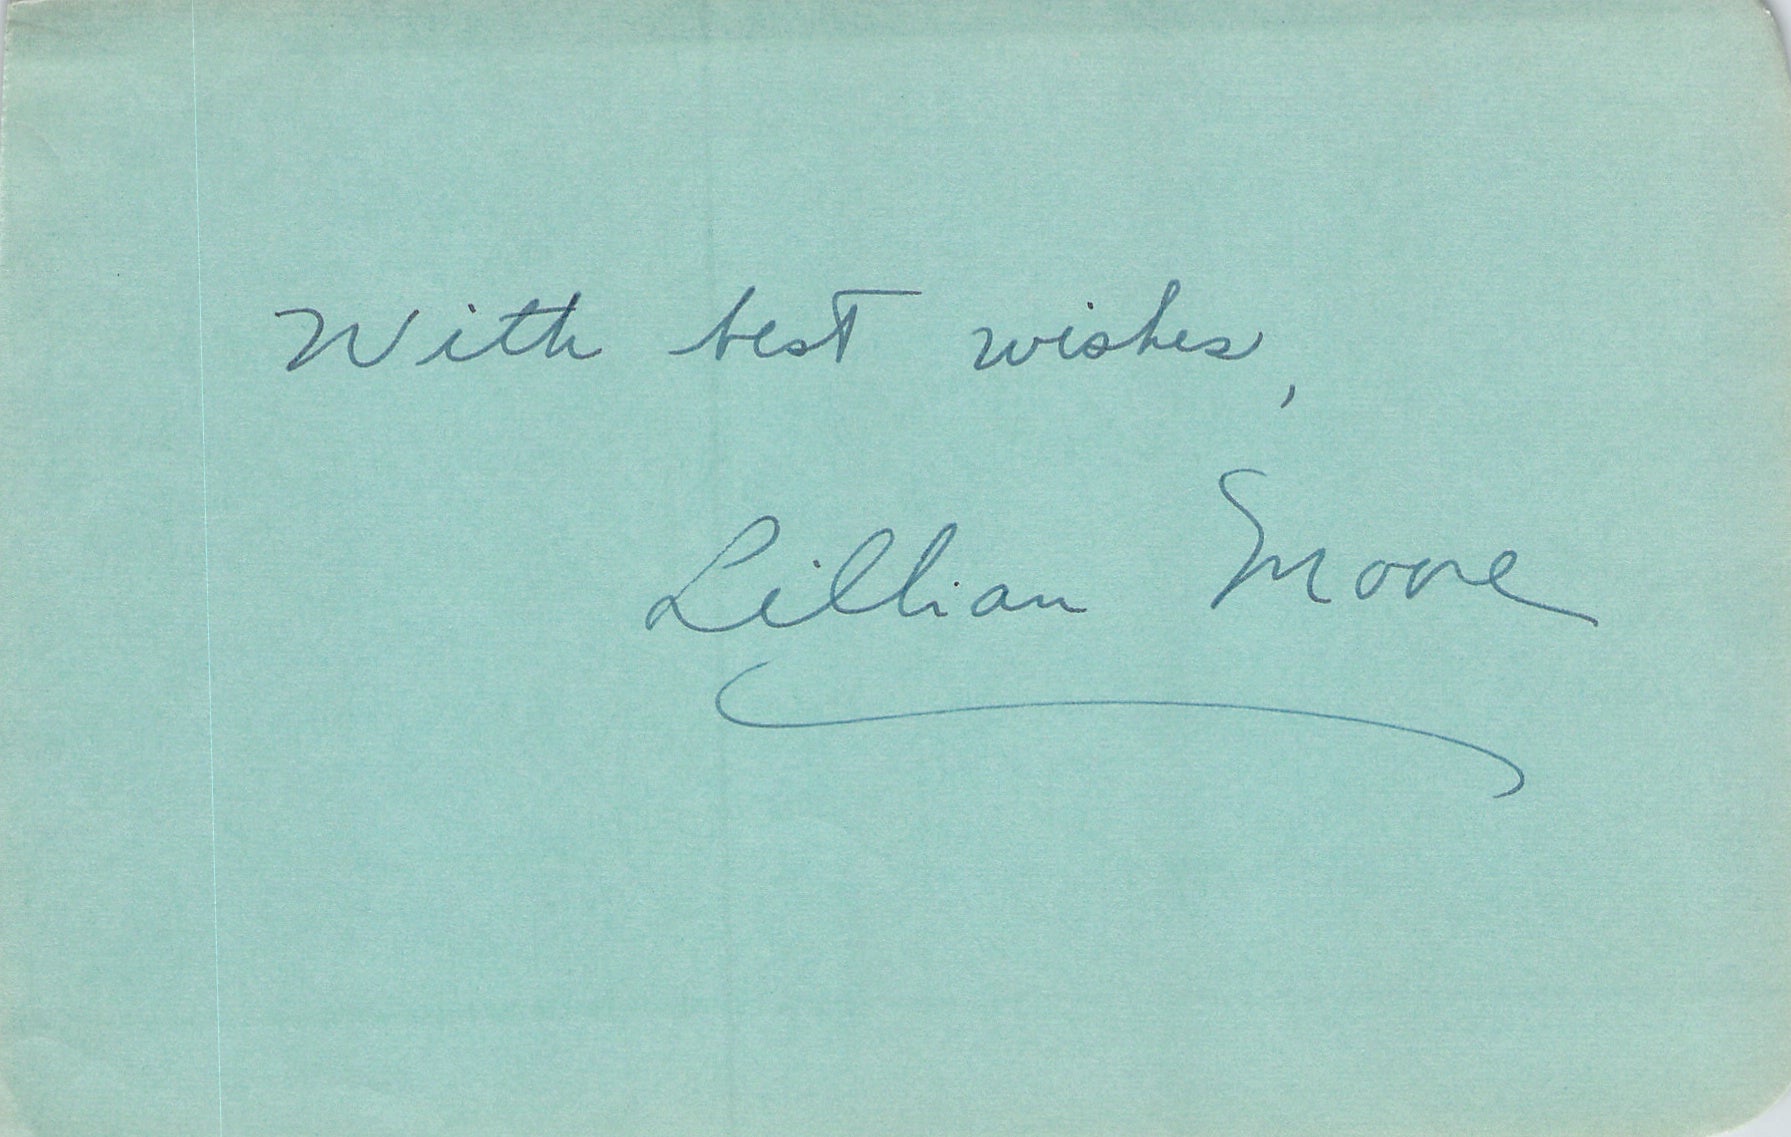 With best wishes,
Lillian Moore